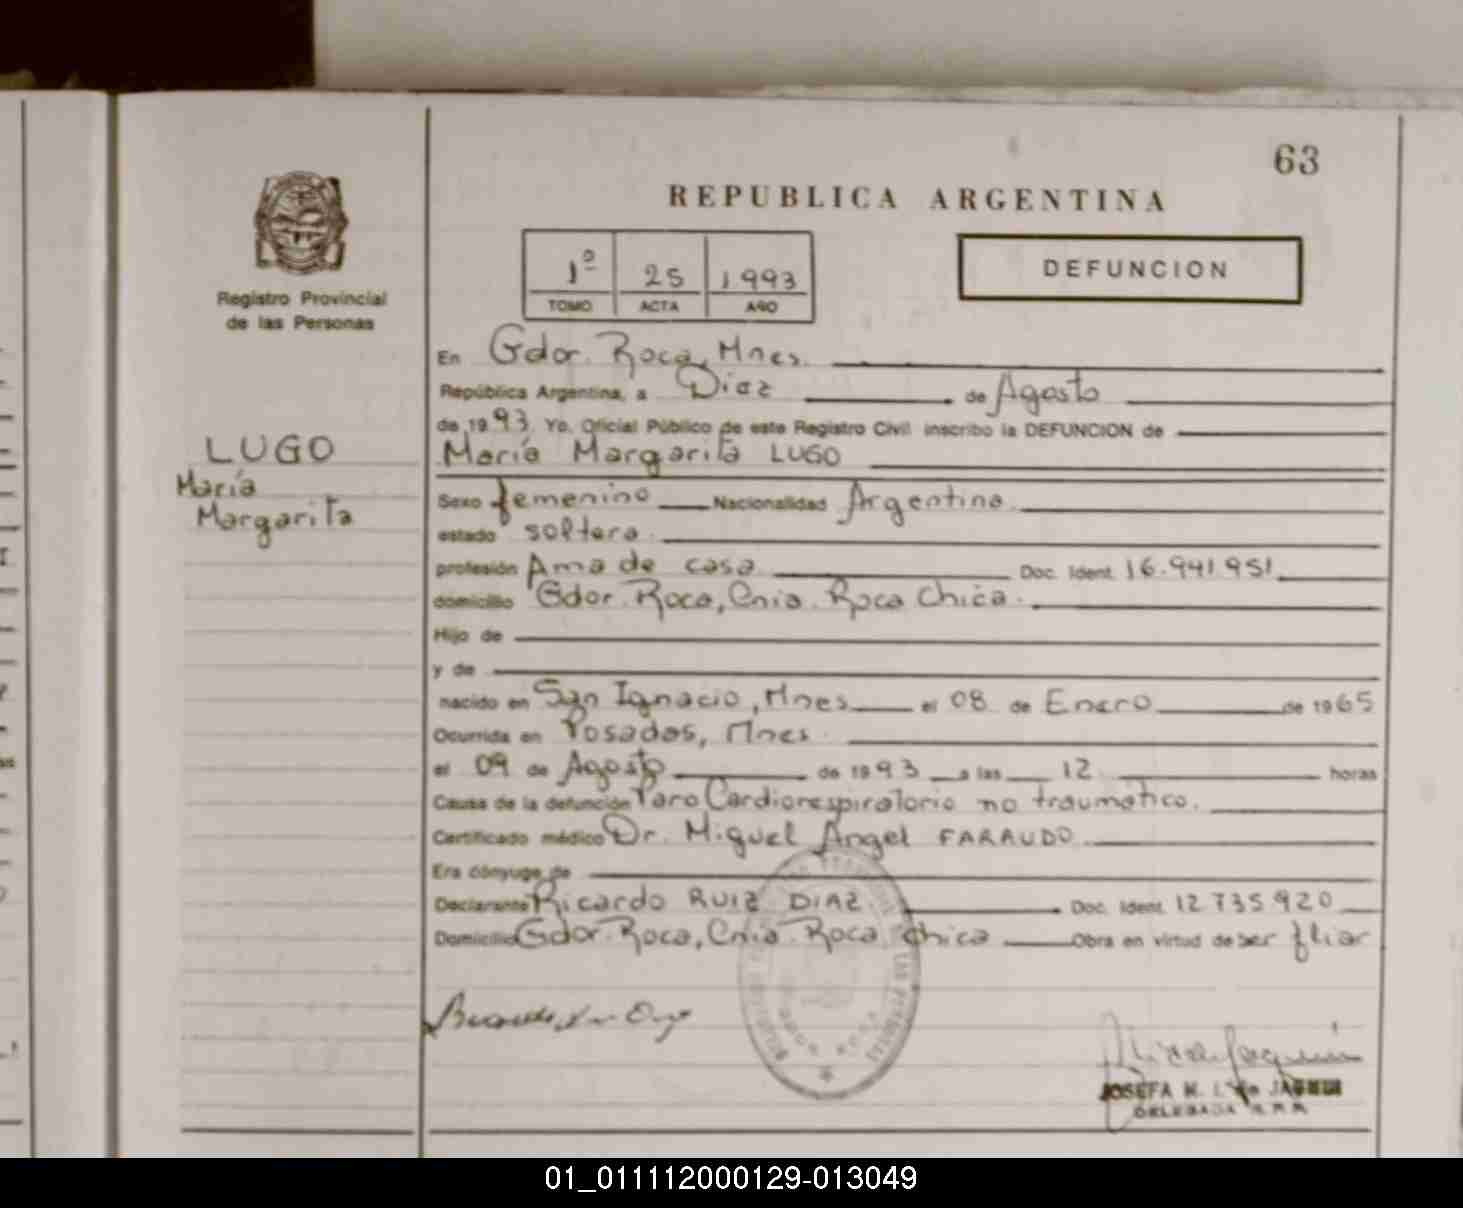 63
REPUBLICA ARGENTINA
1º 25 1.993
TOMO ACTA AÑO
DEFUNCION
Registro Provincial
de las Personas
LUGO
María
Margarita
En Gdor. Roca, Mnes.
República Argentina, a Diez de Agosto
de 1993 Yo, Oficial Público de este Registro Civil inscribo la DEFUNCION de
María Margarita LUGO
Sexo femenino Nacionalidad Argentina
estado soltera
profesión Ama de casa Doc. Ident. 16.941.951
domicilio Gdor. Roca, Cnia. Roca Chica.
Hijo de
y de
nacido en San Ignacio, Mnes el 08 de Enero de 1965
Ocurrida en Posadas, Mnes.
el 09 de Agosto de 1993 a las 12 horas
Causa de la defunción Paro Cardiorespiratorio no traumático.
Certificado médico Dr. Miguel Angel FARAUDO
Era cónyuge de
Declarante Ricardo RUIZ DIAZ Doc. Ident. 12.735.920
Domicilio Gdor. Roca, Cnia. Roca Chica Obra en virtud de ser fliar
JOSEFA M. I. de
DELEGADA
01_011112000129-013049